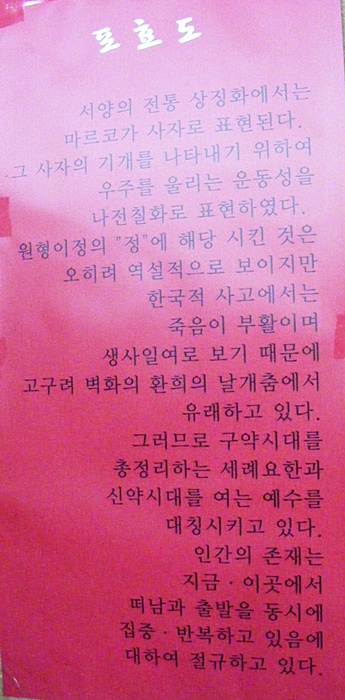 포 효 도
서양의 전통 상징화에서는
마르코가 사자로 표현된다.
그 사자의 기개를 나타내기 위하여
우주를 울리는 운동성을
나전칠화로 표현하였다.
원형이정의 "정"에 해당 시킨 것은
오히려 역설적으로 보이지만
한국적 사고에서는
죽음이 부활이며
생사일여로 보기 때문에
고구려 벽화의 환희의 날개춤에서
유래하고 있다.
그러므로 구약시대를
총정리하는 세례요한과
신약시대를 여는 예수를
대칭시키고 있다.
인간의 존재는
지금 · 이곳에서
떠남과 출발을 동시에
집중 · 반복하고 있음에
대하여 절규하고 있다.